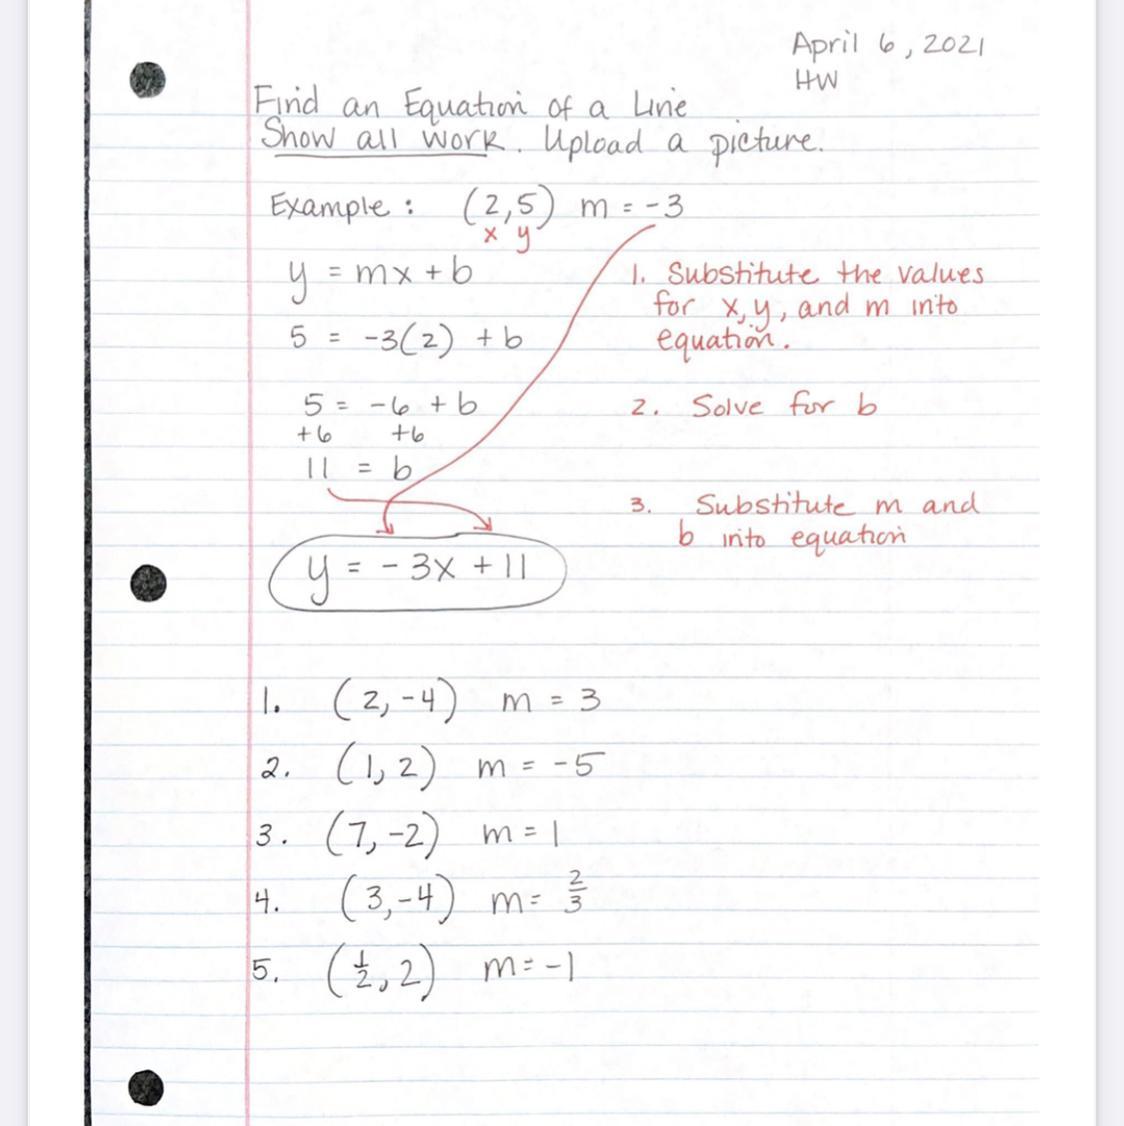 April 6, 2021
HW
Find an Equation of a Line
Show all work. Upload a picture.
Example: (2,5) m = -3
x y
y = mx + b
5 = -3(2) + b
5 = -6 + b
+6 +6
11 = b
y = -3x + 11
1. Substitute the values
for x, y, and m into
equation.
2. Solve for b
3. Substitute m and
b into equation
1. (2, -4) m = 3
2. (1, 2) m = -5
3. (7, -2) m = 1
4. (3, -4) m = 2/3
5. (1/2, 2) m = -1